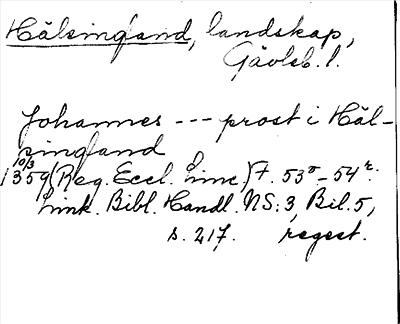 Hälsingland, landskap,
Gävleb. l.
Johannes --- prost i Häl-
singland
10/3
1359 (Reg. Eccl. Linc) f. 53v - 54r.
Link. Bibl. Handl. NS: 3, Bil. 5,
s. 217. regest.